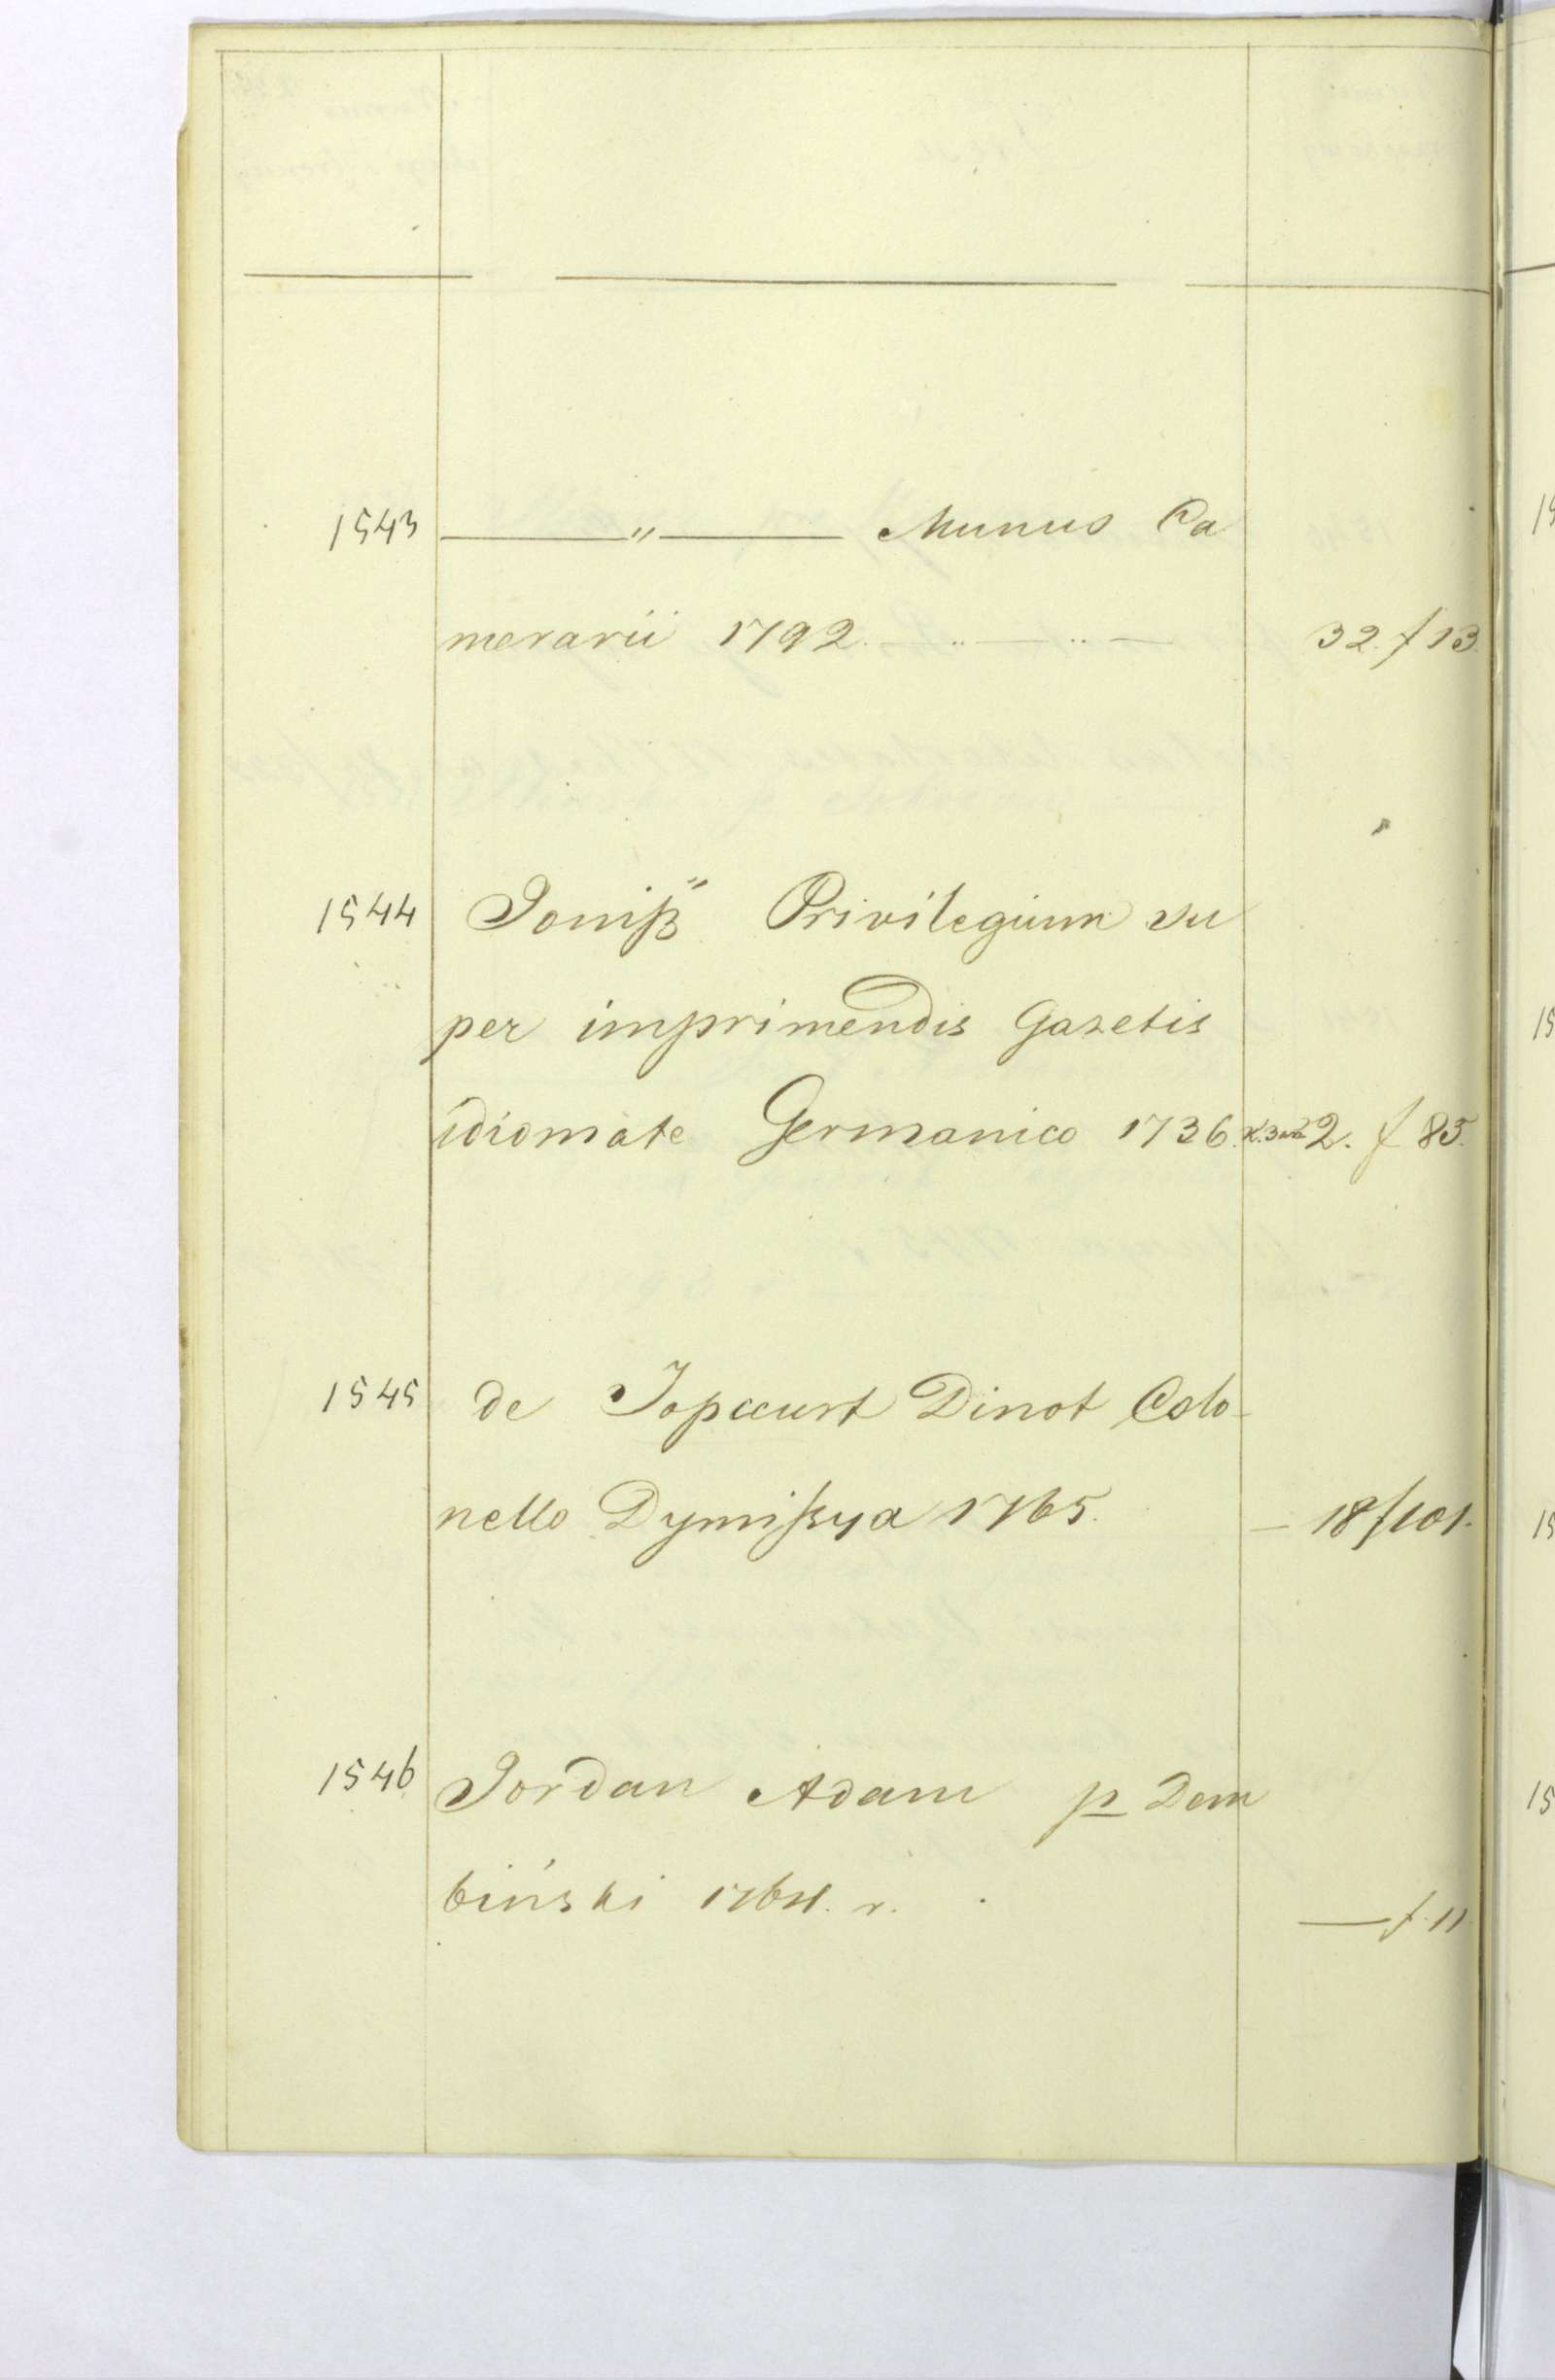 1543 ———"——— Munus Ca
merarii 1792. — .. — .. — 32. f 13.
1544 Joniß" Privilegium su
per imprimendis Gazetis
idiomate Germanico 1736. 2. f 85.
1545 de Jopccurt Dinot Colo-
nello Dymißya 1765. — 18 f 101.
1546 Jordan Adam p Dem
biński 1764. r. — f. 11